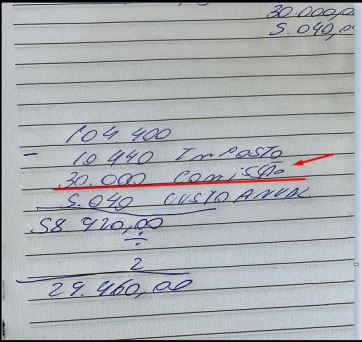 30.000,00
5.040,00
104 400
- 10 440 Imposto
30.000 Comissão
5.040 CUSTO ANUAL
58 920,00
÷
2
29.460,00